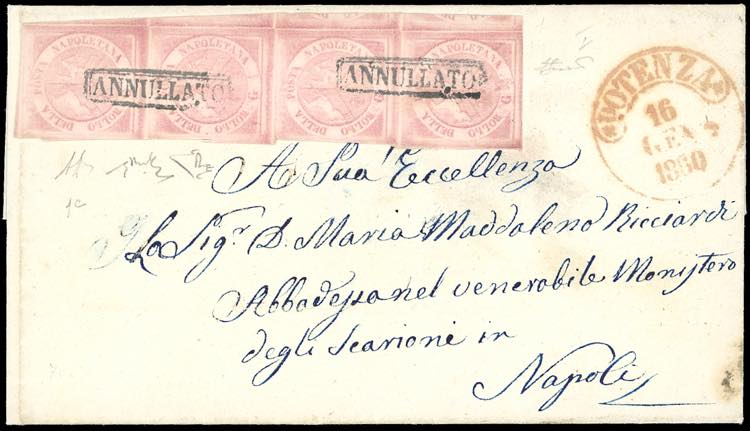 DELLA POSTA NAPOLETANA G BOLLO
DELLA POSTA NAPOLETANA G BOLLO
DELLA POSTA NAPOLETANA G BOLLO
DELLA POSTA NAPOLETANA G BOLLO
ANNULLATO
ANNULLATO
POTENZA
16
GEN
1860
A Sua Eccellenza
La Sig.r D. Maria Maddalena Ricciardi
Abbadessa nel venerabile Monistero
degli Scarioni in
Napoli